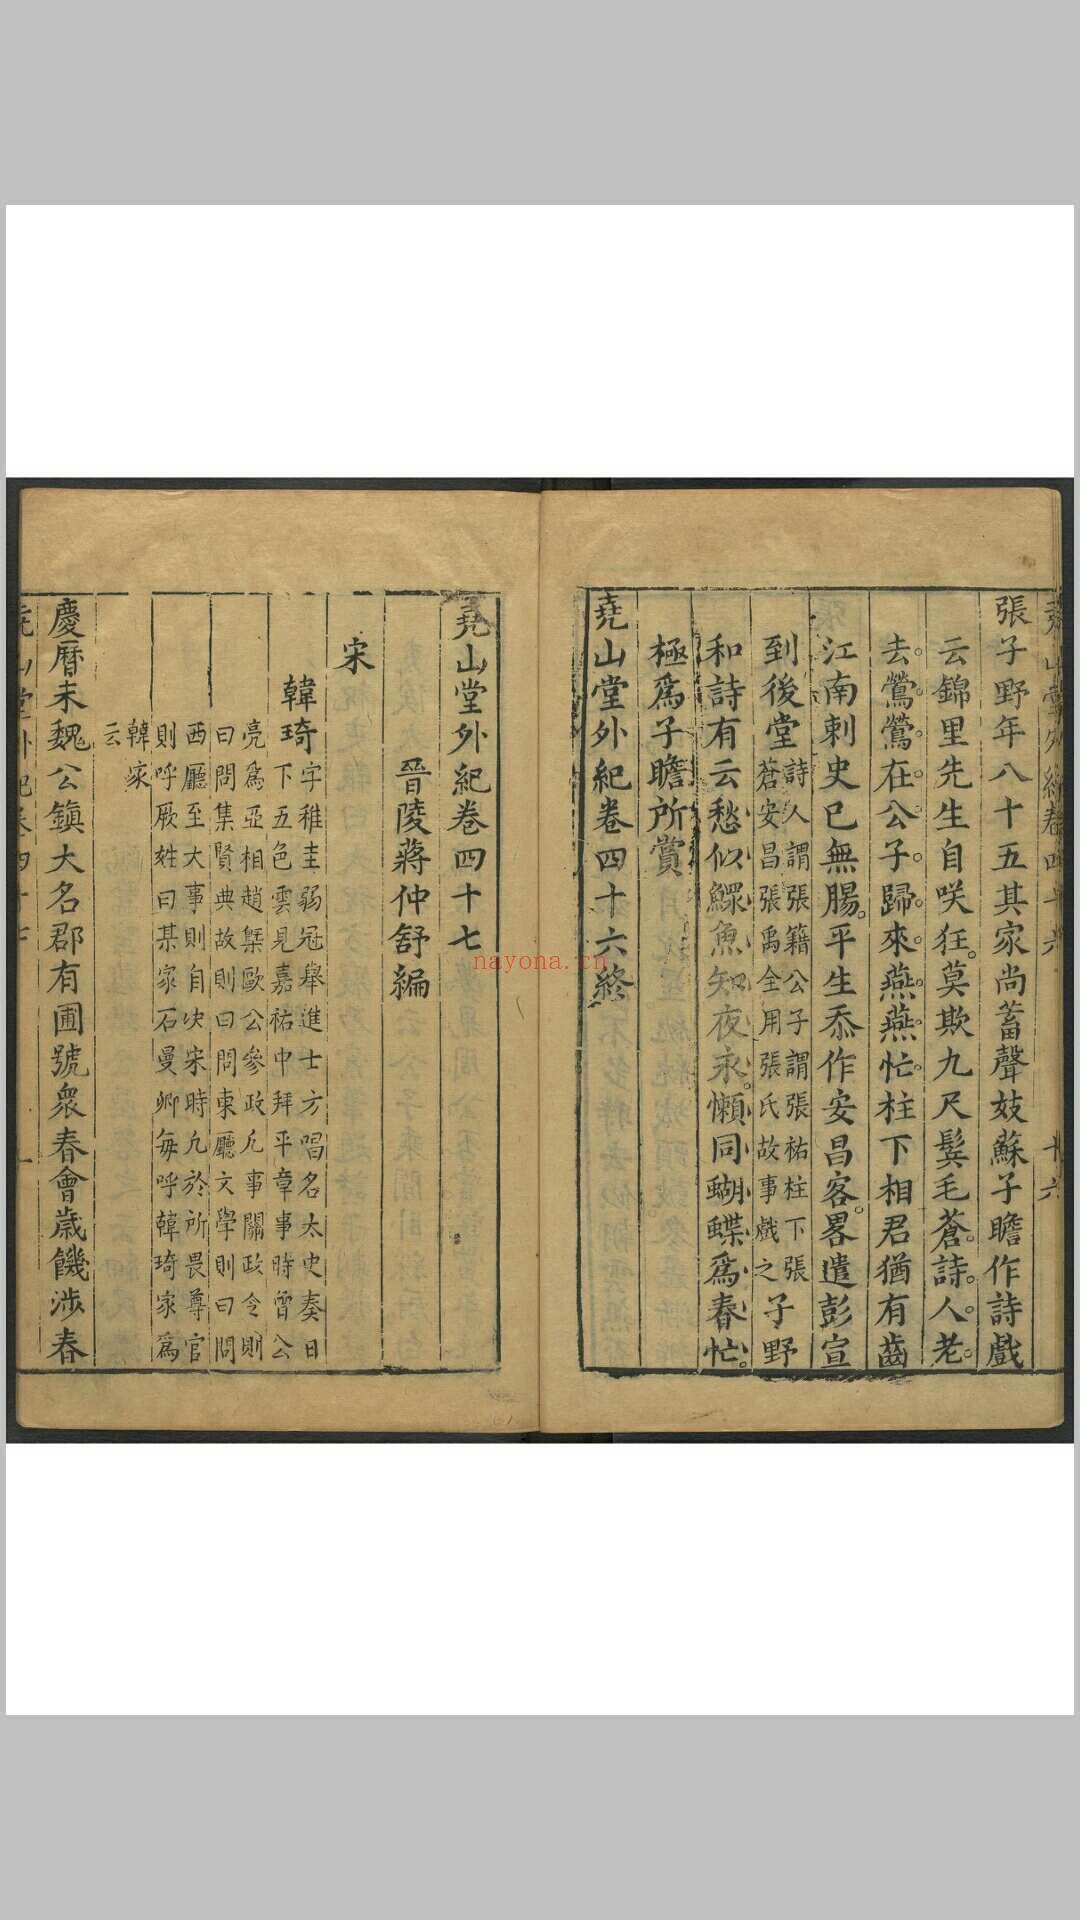 張子野年八十五其家尚蓄聲妓蘇子瞻作詩戲
云錦里先生自咲狂。莫欺九尺鬂毛蒼。詩。人。老。
去。鶯。鶯。在。公。子。歸。來。燕。燕。忙。柱下相君猶有齒
江南刺史已無腸。平生忝作安昌客。畧遣彭宣
到後堂詩人謂張籍公子謂張祐柱下張
蒼安昌張禹全用張氏故事戲之子野
和詩有云愁似鰥魚知夜永。懶同蝴蝶爲春忙。
極爲子瞻所賞
堯山堂外紀卷四十六終
堯山堂外紀卷四十七
晉陵蔣仲舒編
宋
韓琦字稚圭弱冠舉進士方唱名太史奏日
下五色雲見嘉祐中拜平章事時曾公
亮爲亞相趙槩歐公參政凢事關政令則
曰問集賢典故則曰問東廳文學則曰問
西廳至大事則自决宋時凢於所畏尊官
則呼厥姓曰某家石曼卿每呼韓琦家爲
韓家
云
慶曆末魏公鎮大名郡有圃號衆春會歲饑涉春
nayona.cn